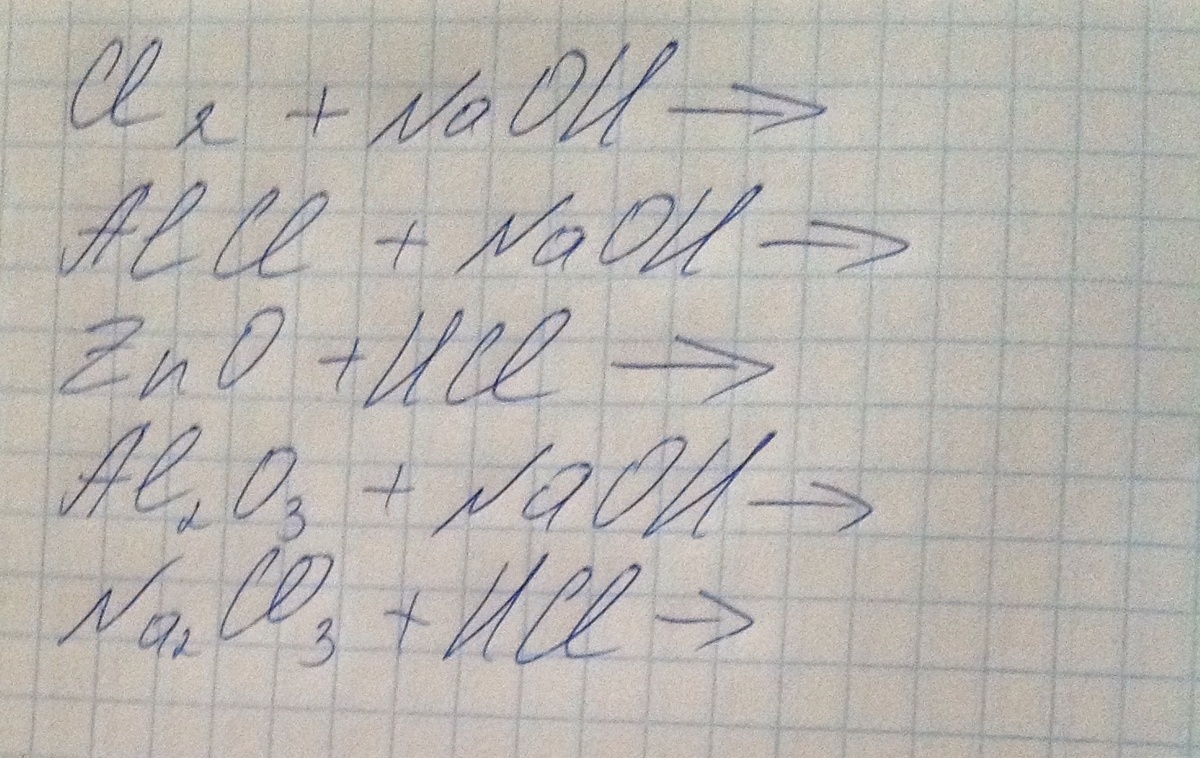 Cl₂ + NaOH →
AlCl + NaOH →
ZnO + HCl →
Al₂O₃ + NaOH →
Na₂CO₃ + HCl →